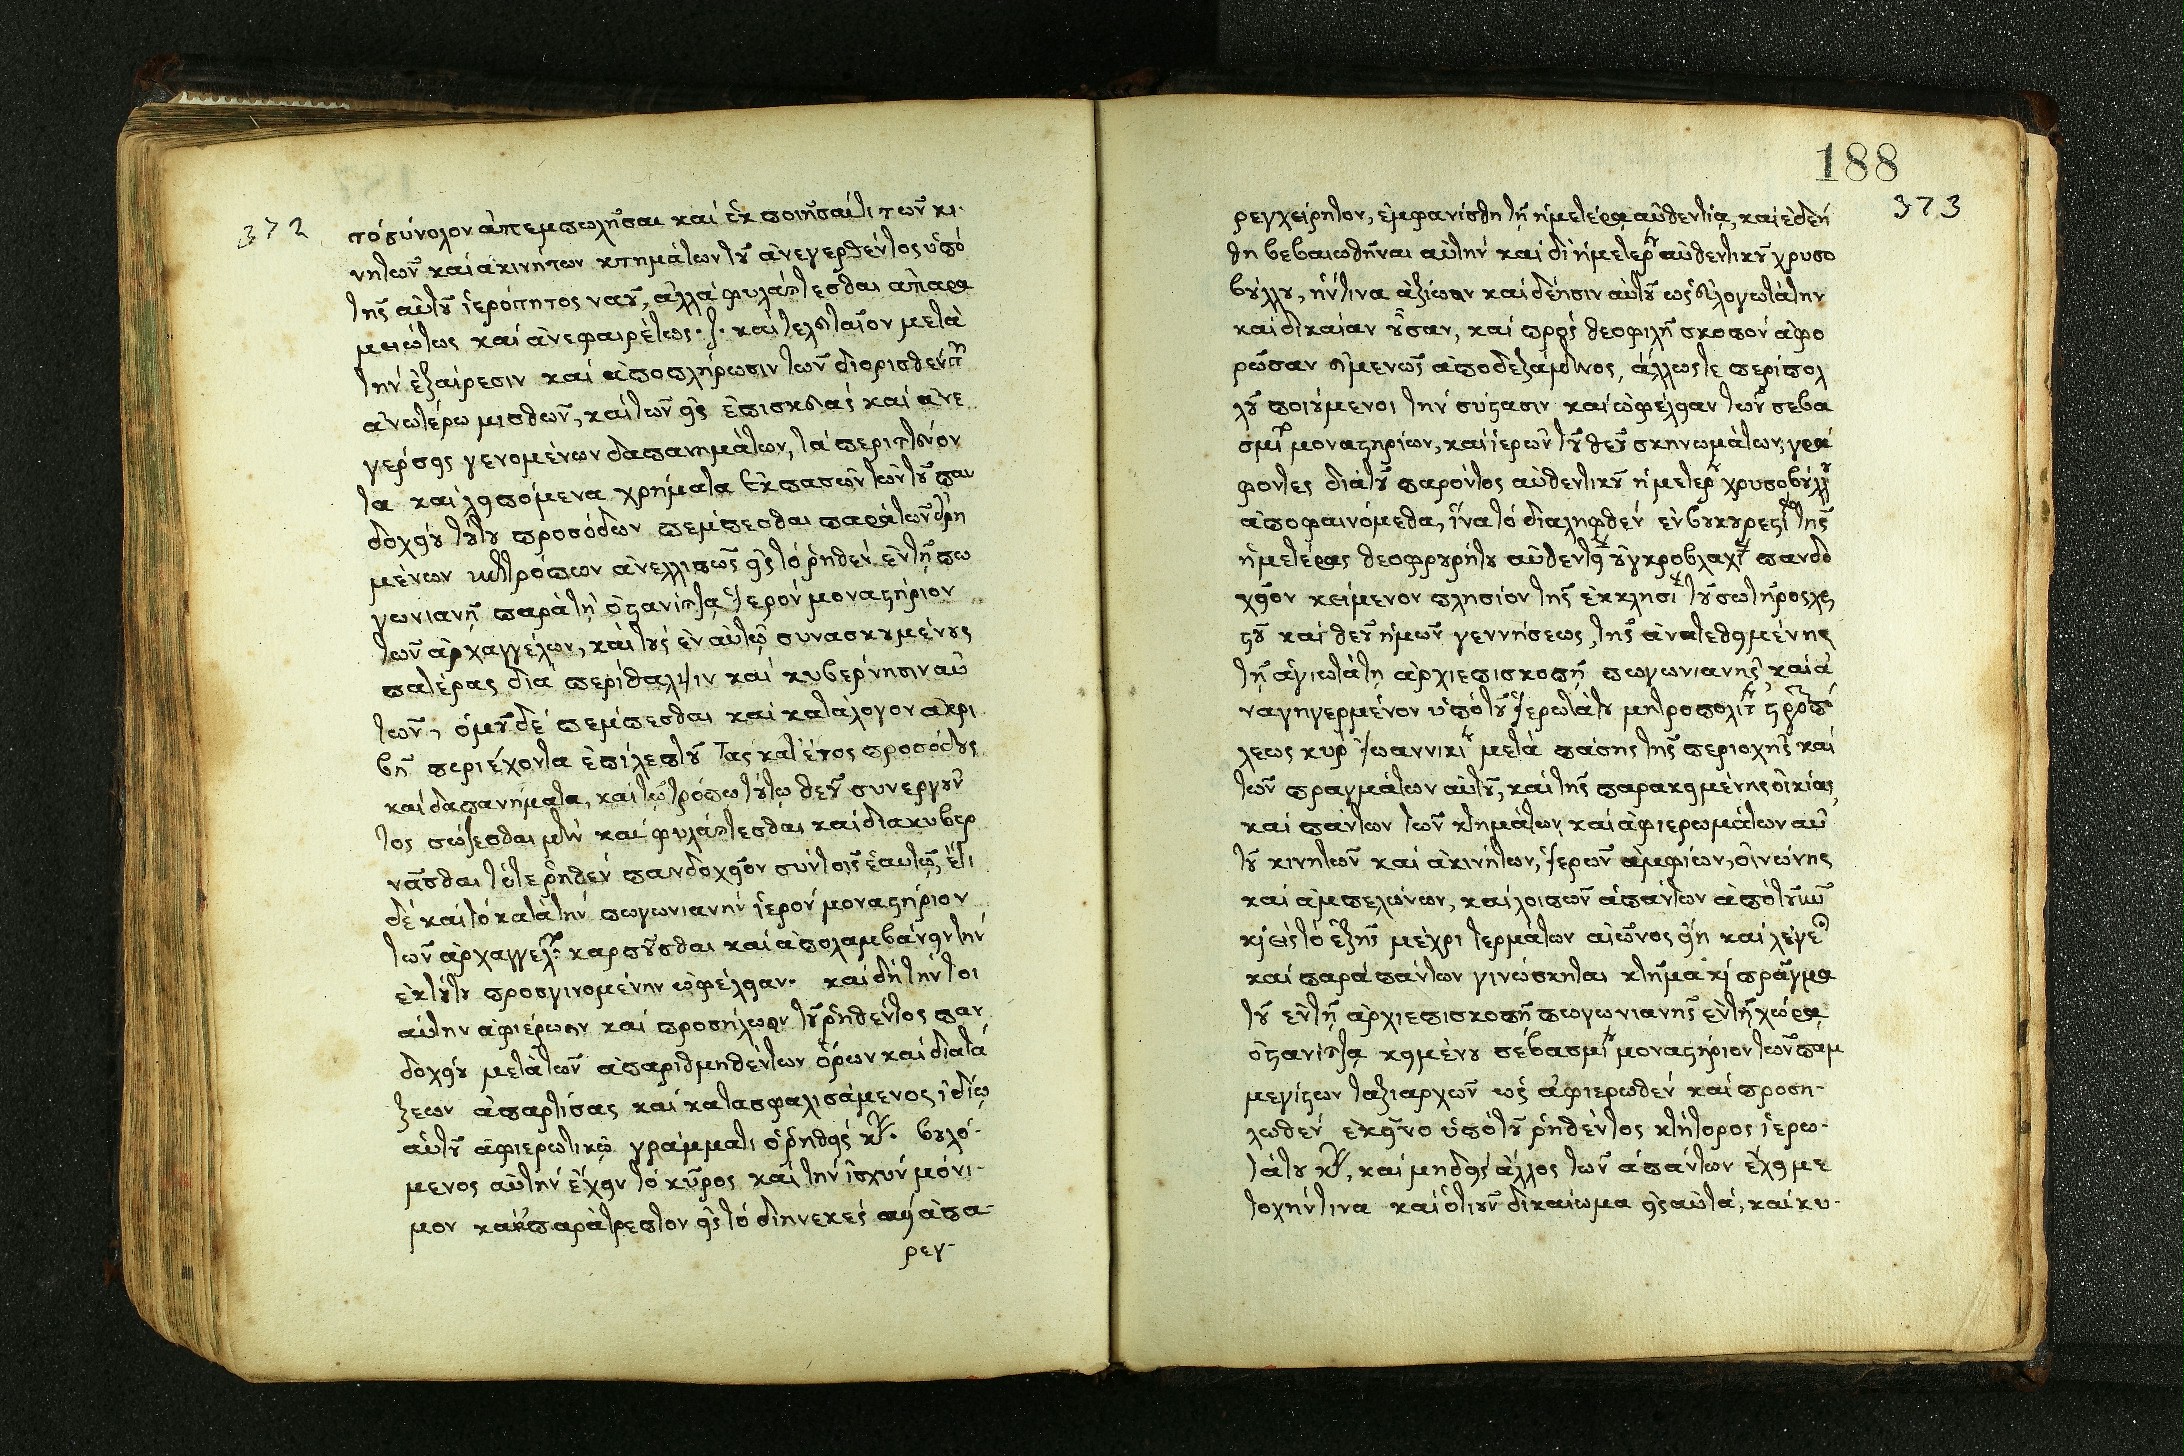 372
τὸ σύνολον ἀπεμπωλῆσαι καὶ ἐκποιῆσαί τι τῶν κι-
νητῶν καὶ ἀκινήτων κτημάτων τοῦ ἀνεγερθέντος ὑπὸ
τῆς αὐτοῦ ἱερότητος ναοῦ, ἀλλὰ φυλάττεσθαι ἀπαρα
μειώτως καὶ ἀνεφαιρέτως. καὶ τελευταῖον μετὰ
τὴν ἐξαίρεσιν καὶ ἀποπλήρωσιν τῶν διορισθέντων
ἀνωτέρω μισθῶν, καὶ τῶν εἰς ἐπισκευὰς καὶ ἀνε
γέρσεις γενομένων δαπανημάτων, τὰ περιττεύον
τα καὶ λειπόμενα χρήματα ἐκ πασῶν τῶν τοῦ παν
δοχείου τούτου προσόδων πέμπεσθαι παρὰ τῶν
μένων ἐπιτρόπων ἀνελλιπῶς εἰς τὸ ῥηθὲν ἐν τῇ πω
γωνιανῇ παρὰ τῇ ὀστανίτζᾳ ἱερὸν μοναστήριον
τῶν ἀρχαγγέλων, καὶ τοὺς ἐν αὐτῷ συνασκουμένους
πατέρας διὰ περίθαλψιν καὶ κυβέρνησιν αὐ
τῶν, ὁμοῦ δὲ πέμπεσθαι καὶ κατάλογον ἀκρι
βῆ περιέχοντα ἐπὶ λεπτοῦ τὰς κατ' ἔτος προσόδους
καὶ δαπανήματα, καὶ τῷ τρόπῳ τούτῳ θεοῦ συνεργοῦν
τος σώζεσθαι μὲν καὶ φυλάττεσθαι καὶ διακυβερ
νᾶσθαι τό τε ῥηθὲν πανδοχεῖον σὺν τοῖς ἑαυτῷ, ἔτι
δὲ καὶ τὸ κατὰ τὴν πωγωνιανὴν ἱερὸν μοναστήριον
τῶν ἀρχαγγέλων καρποῦσθαι καὶ ἀπολαμβάνειν τὴν
ἐκ τούτου προσγινομένην ὠφέλειαν. καὶ δὴ τὴν τοι
αύτην ἀφιέρωσιν καὶ προσήλωσιν τοῦ ῥηθέντος παν
δοχείου μετὰ τῶν ἀπαριθμηθέντων ὅρων καὶ διατά
ξεων ἀπαρτίσας καὶ κατασφαλισάμενος ἰδίῳ
αὐτοῦ ἀφιερωτικῷ γράμματι ὁ ῥηθεὶς βουλό-
μενος αὐτὴν ἔχειν τὸ κῦρος καὶ τὴν ἰσχὺν μόνι-
μον καὶ ἀπαράτρεπτον εἰς τὸ διηνεκὲς ἀπα-
ρεγ-
188
373
ρεγχείρητον, ἐμφανίσθη τῇ ἡμετέρᾳ αὐθεντίᾳ, καὶ ἐδεή
θη βεβαιωθῆναι αὐτὴν καὶ δι' ἡμετέρου αὐθεντικοῦ χρυσο
βούλλου, ἥντινα ἀξίωσιν καὶ δέησιν αὐτοῦ ὡς εὐλογωτάτην
καὶ δικαίαν οὖσαν, καὶ πρὸς θεοφιλῆ σκοπὸν ἀφο
ρῶσαν εὐμενῶς ἀποδεξάμενος, ἄλλως τε περὶ πολ
λοῦ ποιούμενοι τὴν σύστασιν καὶ ὠφέλειαν τῶν σεβα
σμίων μοναστηρίων, καὶ ἱερῶν τοῦ θεοῦ σκηνωμάτων, γρά
φοντες διὰ τοῦ παρόντος αὐθεντικοῦ ἡμετέρου χρυσοβούλλου
ἀποφαινόμεθα, ἵνα τὸ διαληφθὲν ἐν βουκουρεστίῳ τῆς
ἡμετέρας θεοφρουρήτου αὐθεντείας οὐγκροβλαχίας πανδο
χεῖον κείμενον πλησίον τῆς ἐκκλησίας τοῦ σωτῆρος χρι
στοῦ καὶ θεοῦ ἡμῶν γεννήσεως, τῆς ἀνατεθειμένης
τῇ ἁγιωτάτῃ ἀρχιεπισκοπῇ πωγωνιανῆς καὶ ἀ
ναγηγερμένον ὑπὸ τοῦ ἱερωτάτου μητροπολίτου σταυροπό
λεως κυρ ἰωαννικίου μετὰ πάσης τῆς περιοχῆς καὶ
τῶν πραγμάτων αὐτοῦ, καὶ τῆς παρακειμένης οἰκίας,
καὶ πάντων τῶν κτημάτων καὶ ἀφιερωμάτων αὐ
τοῦ κινητῶν καὶ ἀκινήτων, ἱερῶν ἀμφίων, οἰνώνης
καὶ ἀμπελώνων, καὶ λοιπῶν ἁπάντων ἀπὸ τοῦ νῦν
καὶ εἰς τὸ ἑξῆς μέχρι τερμάτων αἰῶνος εἴη καὶ λέγεται
καὶ παρὰ πάντων γινώσκηται κτῆμα καὶ πρᾶγμα
τοῦ ἐν τῇ ἀρχιεπισκοπῇ πωγωνιανῆς ἐν τῇ χώρᾳ
ὀστανίτζᾳ κειμένου σεβασμίου μοναστηρίου τῶν παμ
μεγίστων ταξιαρχῶν ὡς ἀφιερωθὲν καὶ προση-
λωθὲν ἐκεῖνο ὑπὸ τοῦ ῥηθέντος κτήτορος ἱερω-
τάτου, καὶ μηδεὶς ἄλλος τῶν ἁπάντων ἔχει με
τοχήν τινα καὶ ὁτιοῦν δικαίωμα εἰς αὐτά, καὶ κυ-